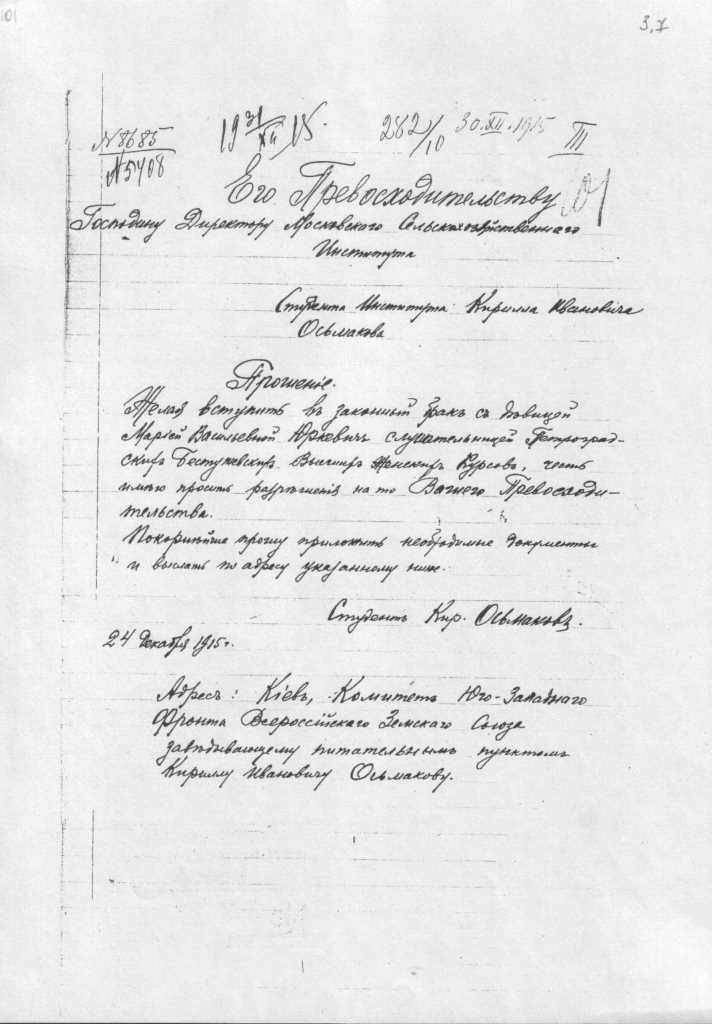 3,7
№8685
№5408
19 31/XII 15.
262/10
30.XII.1915
III
Его Превосходительству
Господину Директору Московского Сельскохозяйственнаго
Института
Студента Института Кирилла Ивановича
Осьмакова
Прошеніе.
Желая вступить въ законный бракъ съ дѣвицей
Маріей Васильевной Юркевичъ слушательницей Петроград-
скихъ Бестужевскихъ Высшихъ Женскихъ Курсовъ, честь
имѣю просить разрѣшенія на то Вашего Превосходи-
тельства.
Покорнѣйше прошу приложить необходимые документы
и выслать по адресу указанному ниже.
Студентъ Кир. Осьмаковъ.
24 декабря 1915 г.
Адресъ: Кіевъ, Комитетъ Юго-Западнаго
Фронта Всероссійскаго Земскаго Союза
завѣдывающему питательнымъ пунктомъ
Кириллу Ивановичу Осьмакову.